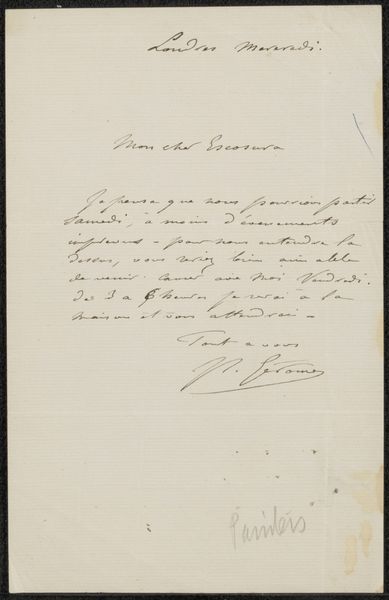 Londres Mercredi.
Mon cher Escosura
Je pense que nous pourrions partir
Samedi, à moins d'évenements
imprévus - pour nous entendre la
dessus, vous seriez bien aimable
de venir causer avec moi Vendredi.
de 3 a 6 heures je serai a la
maison et vous attendrai -
Tout a vous
J. Gerome